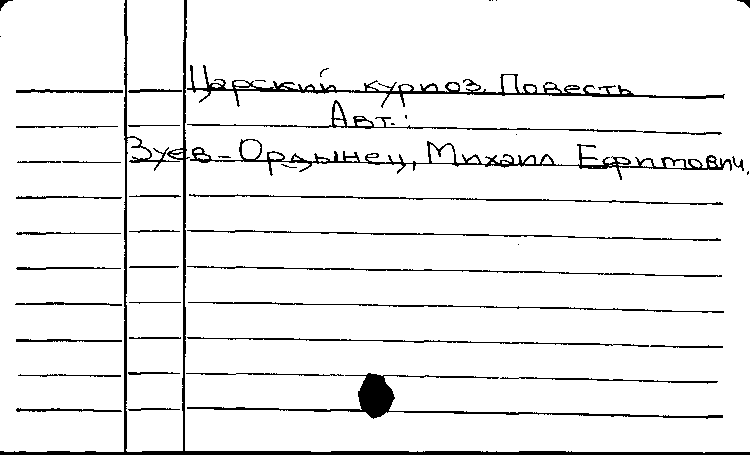 Царский курьоз. Повесть
Авт.:
Зуев-Ордынец, Михаил Ефимович.